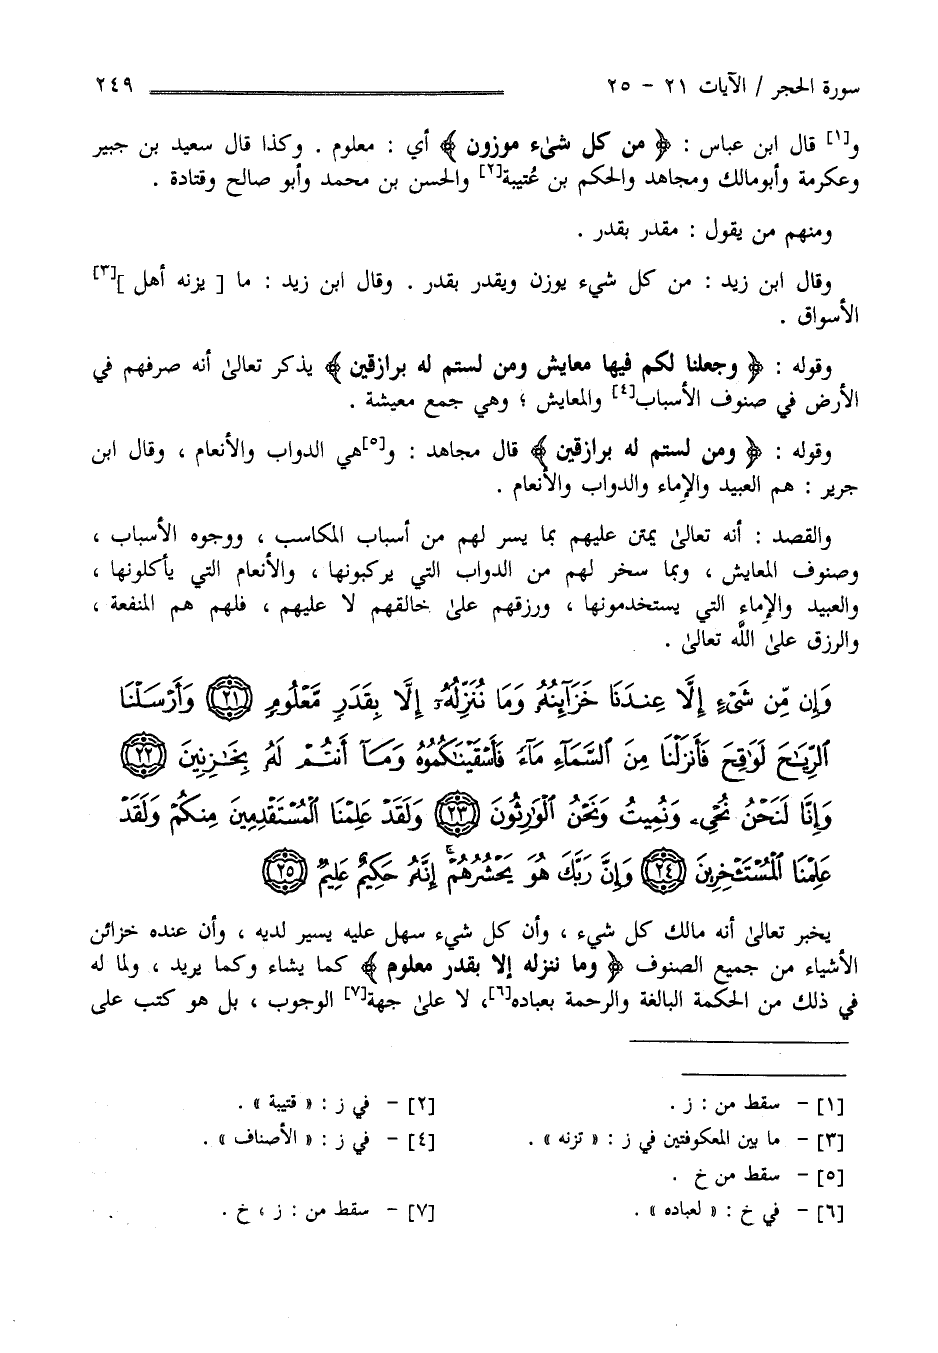 سورة الحجر / الآيات ٢١ - ٢٥ ٢٤٩
و[١] قال ابن عباس : ﴿ من كل شيء موزون ﴾ أي : معلوم . وكذا قال سعيد بن جبير
وعكرمة وأبومالك ومجاهد والحكم بن عُتيبة[٢] والحسن بن محمد وأبو صالح وقتادة .
ومنهم من يقول : مقدر بقدر .
وقال ابن زيد : من كل شيء يوزن ويقدر بقدر . وقال ابن زيد : ما [ يزنه أهل ][٣]
الأسواق .
وقوله : ﴿ وجعلنا لكم فيها معايش ومن لستم له برازقين ﴾ يذكر تعالىٰ أنه صرفهم في
الأرض في صنوف الأسباب[٤] والمعايش ؛ وهي جمع معيشة .
وقوله : ﴿ ومن لستم له برازقين ﴾ قال مجاهد : و[٥]هي الدواب والأنعام ، وقال ابن
جرير : هم العبيد والإماء والدواب والأنعام .
والقصد : أنه تعالىٰ يمتن عليهم بما يسر لهم من أسباب المكاسب ، ووجوه الأسباب ،
وصنوف المعايش ، وبما سخر لهم من الدواب التي يركبونها ، والأنعام التي يأكلونها ،
والعبيد والإماء التي يستخدمونها ، ورزقهم علىٰ خالقهم لا عليهم ، فلهم هم المنفعة ،
والرزق علىٰ اللَّه تعالىٰ .
وَإِن مِّن شَيْءٍ إِلَّا عِندَنَا خَزَآئِنُهُ وَمَا نُنَزِّلُهُۥٓ إِلَّا بِقَدَرٍ مَّعْلُومٍ ﴿٢١﴾ وَأَرْسَلْنَا
ٱلرِّيَـٰحَ لَوَٰقِحَ فَأَنزَلْنَا مِنَ ٱلسَّمَآءِ مَآءً فَأَسْقَيْنَـٰكُمُوهُ وَمَآ أَنتُمْ لَهُۥ بِخَـٰزِنِينَ ﴿٢٢﴾
وَإِنَّا لَنَحْنُ نُحْىِۦ وَنُمِيتُ وَنَحْنُ ٱلْوَٰرِثُونَ ﴿٢٣﴾ وَلَقَدْ عَلِمْنَا ٱلْمُسْتَقْدِمِينَ مِنكُمْ وَلَقَدْ
عَلِمْنَا ٱلْمُسْتَـْٔخِرِينَ ﴿٢٤﴾ وَإِنَّ رَبَّكَ هُوَ يَحْشُرُهُمْ ۚ إِنَّهُۥ حَكِيمٌ عَلِيمٌ ﴿٢٥﴾
يخبر تعالىٰ أنه مالك كل شيء ، وأن كل شيء سهل عليه يسير لديه ، وأن عنده خزائن
الأشياء من جميع الصنوف ﴿ وما ننزله إلا بقدر معلوم ﴾ كما يشاء وكما يريد ، ولما له
في ذلك من الحكمة البالغة والرحمة بعباده[٦]، لا علىٰ جهة[٧] الوجوب ، بل هو كتب على
[١] - سقط من : ز . [٢] - في ز : « قتيبة » .
[٣] - ما بين المعكوفتين في ز : « تزنه » . [٤] - في ز : « الأصناف » .
[٥] - سقط من خ .
[٦] - في خ : « لعباده » . [٧] - سقط من : ز ، خ .